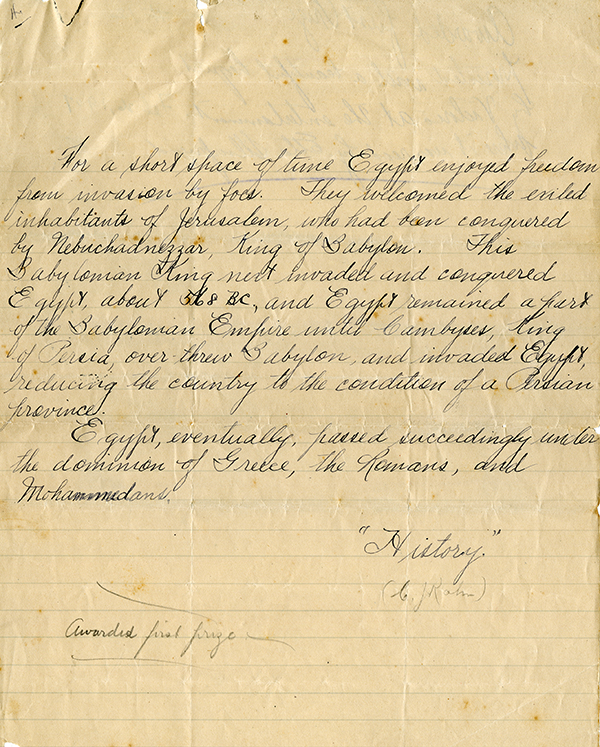 For a short space of time Egypt enjoyed freedom
from invasion by foes. They welcomed the exiled
inhabitants of Jerusalem, who had been conquered
by Nebuchadnezzar, King of Babylon. This
Babylonian King next invaded and conquered
Egypt, about 568 BC, and Egypt remained a part
of the Babylonian Empire until Cambyses, King
of Persia, over threw Babylon, and invaded Egypt,
reducing the country to the condition of a Persian
province.
Egypt, eventually, passed succeedingly under
the dominion of Greece, the Romans, and
Mohammedans.
"History"
Awarded first prize